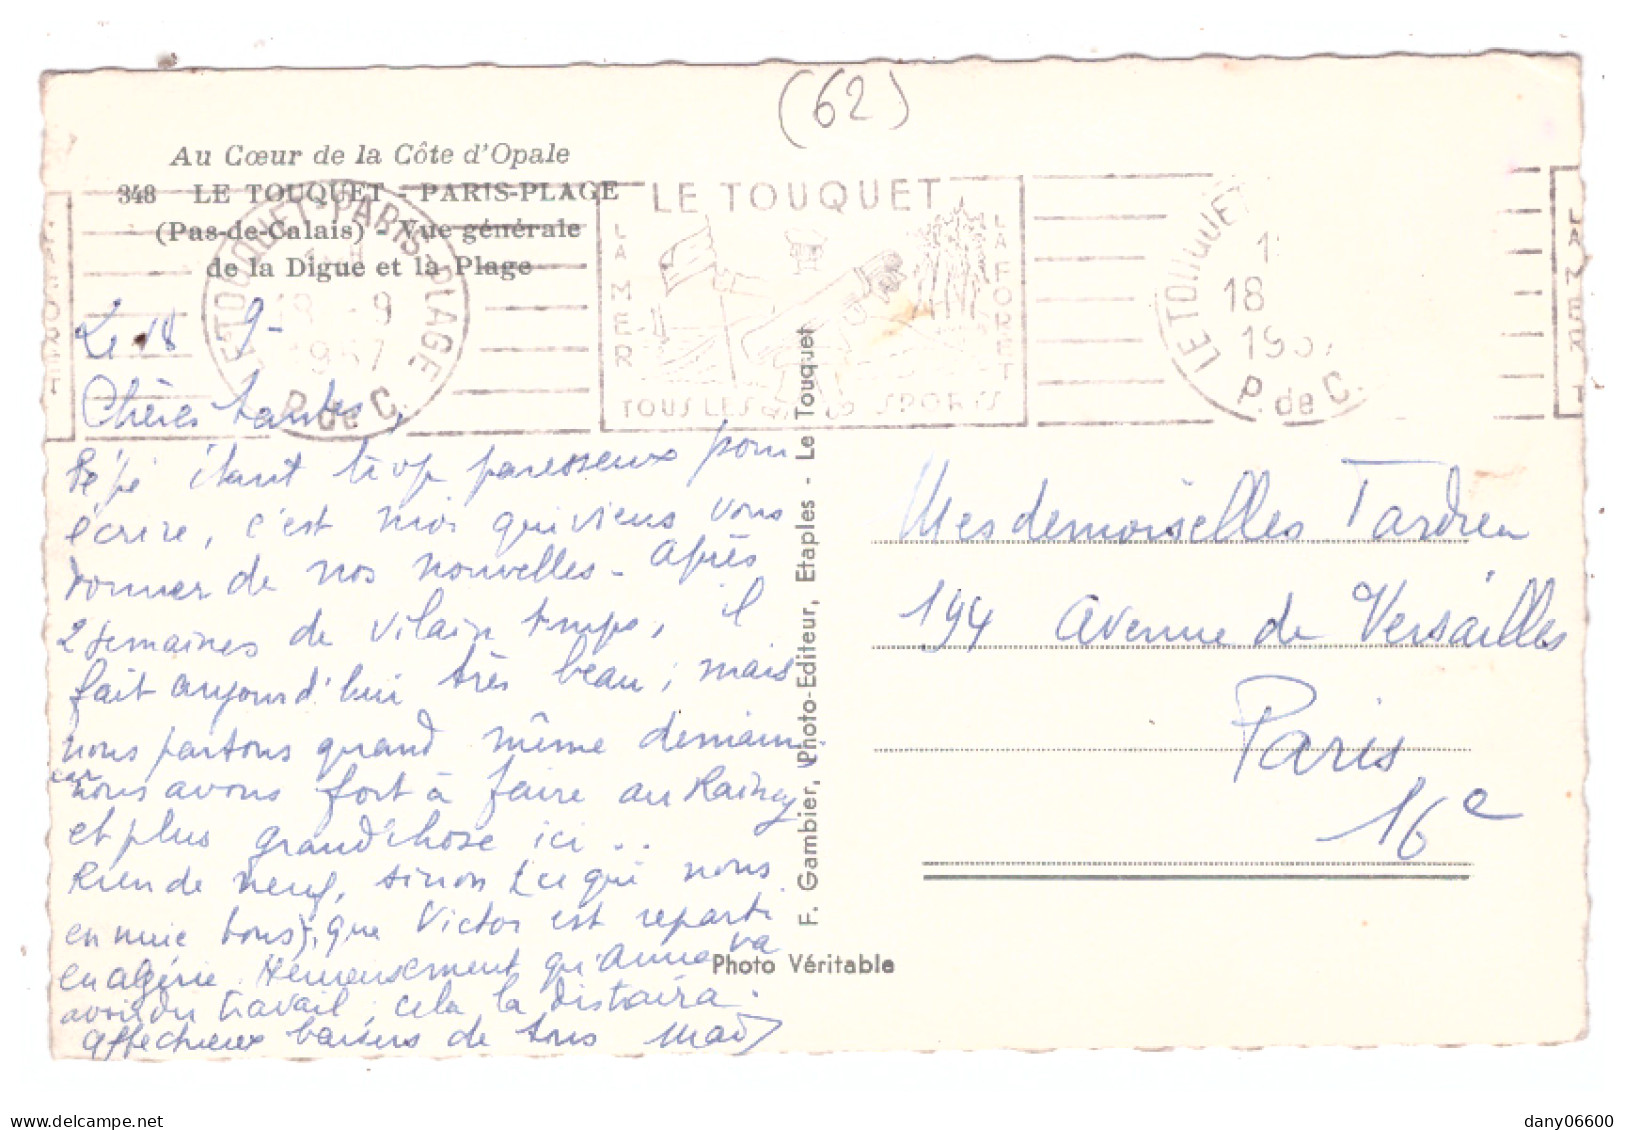 (62)
Au Cœur de la Côte d'Opale
348 LE TOUQUET - PARIS-PLAGE
(Pas-de-Calais) - Vue générale
de la Digue et la Plage
LE TOUQUET-PARIS-PLAGE
18 -9
1957
P. de C.
LE TOUQUET
LA MER
LA FORET
TOUS LES SPORTS
LE TOUQUET
18
195
P. de C.
LA MER
Le 18 9-
Chères tantes,
Pépé étant trop paresseux pour
écrire, c'est moi qui viens vous
donner de nos nouvelles - Après
2 semaines de vilain temps, il
fait aujourd'hui très beau; mais
nous partons quand même demain
car nous avons fort à faire au Raincy
et plus grand'chose ici ..
Rien de neuf, sinon (ce qui nous
ennuie tous), que Victor est reparti
en Algérie. Heureusement qu'Anna va
avoir du travail; cela la distraira.
Affectueux baisers de tous Mad
F. Gambier, Photo-Editeur, Etaples - Le Touquet
Photo Véritable
Mesdemoiselles Tardieu
194 Avenue de Versailles
Paris
16e
dany06600